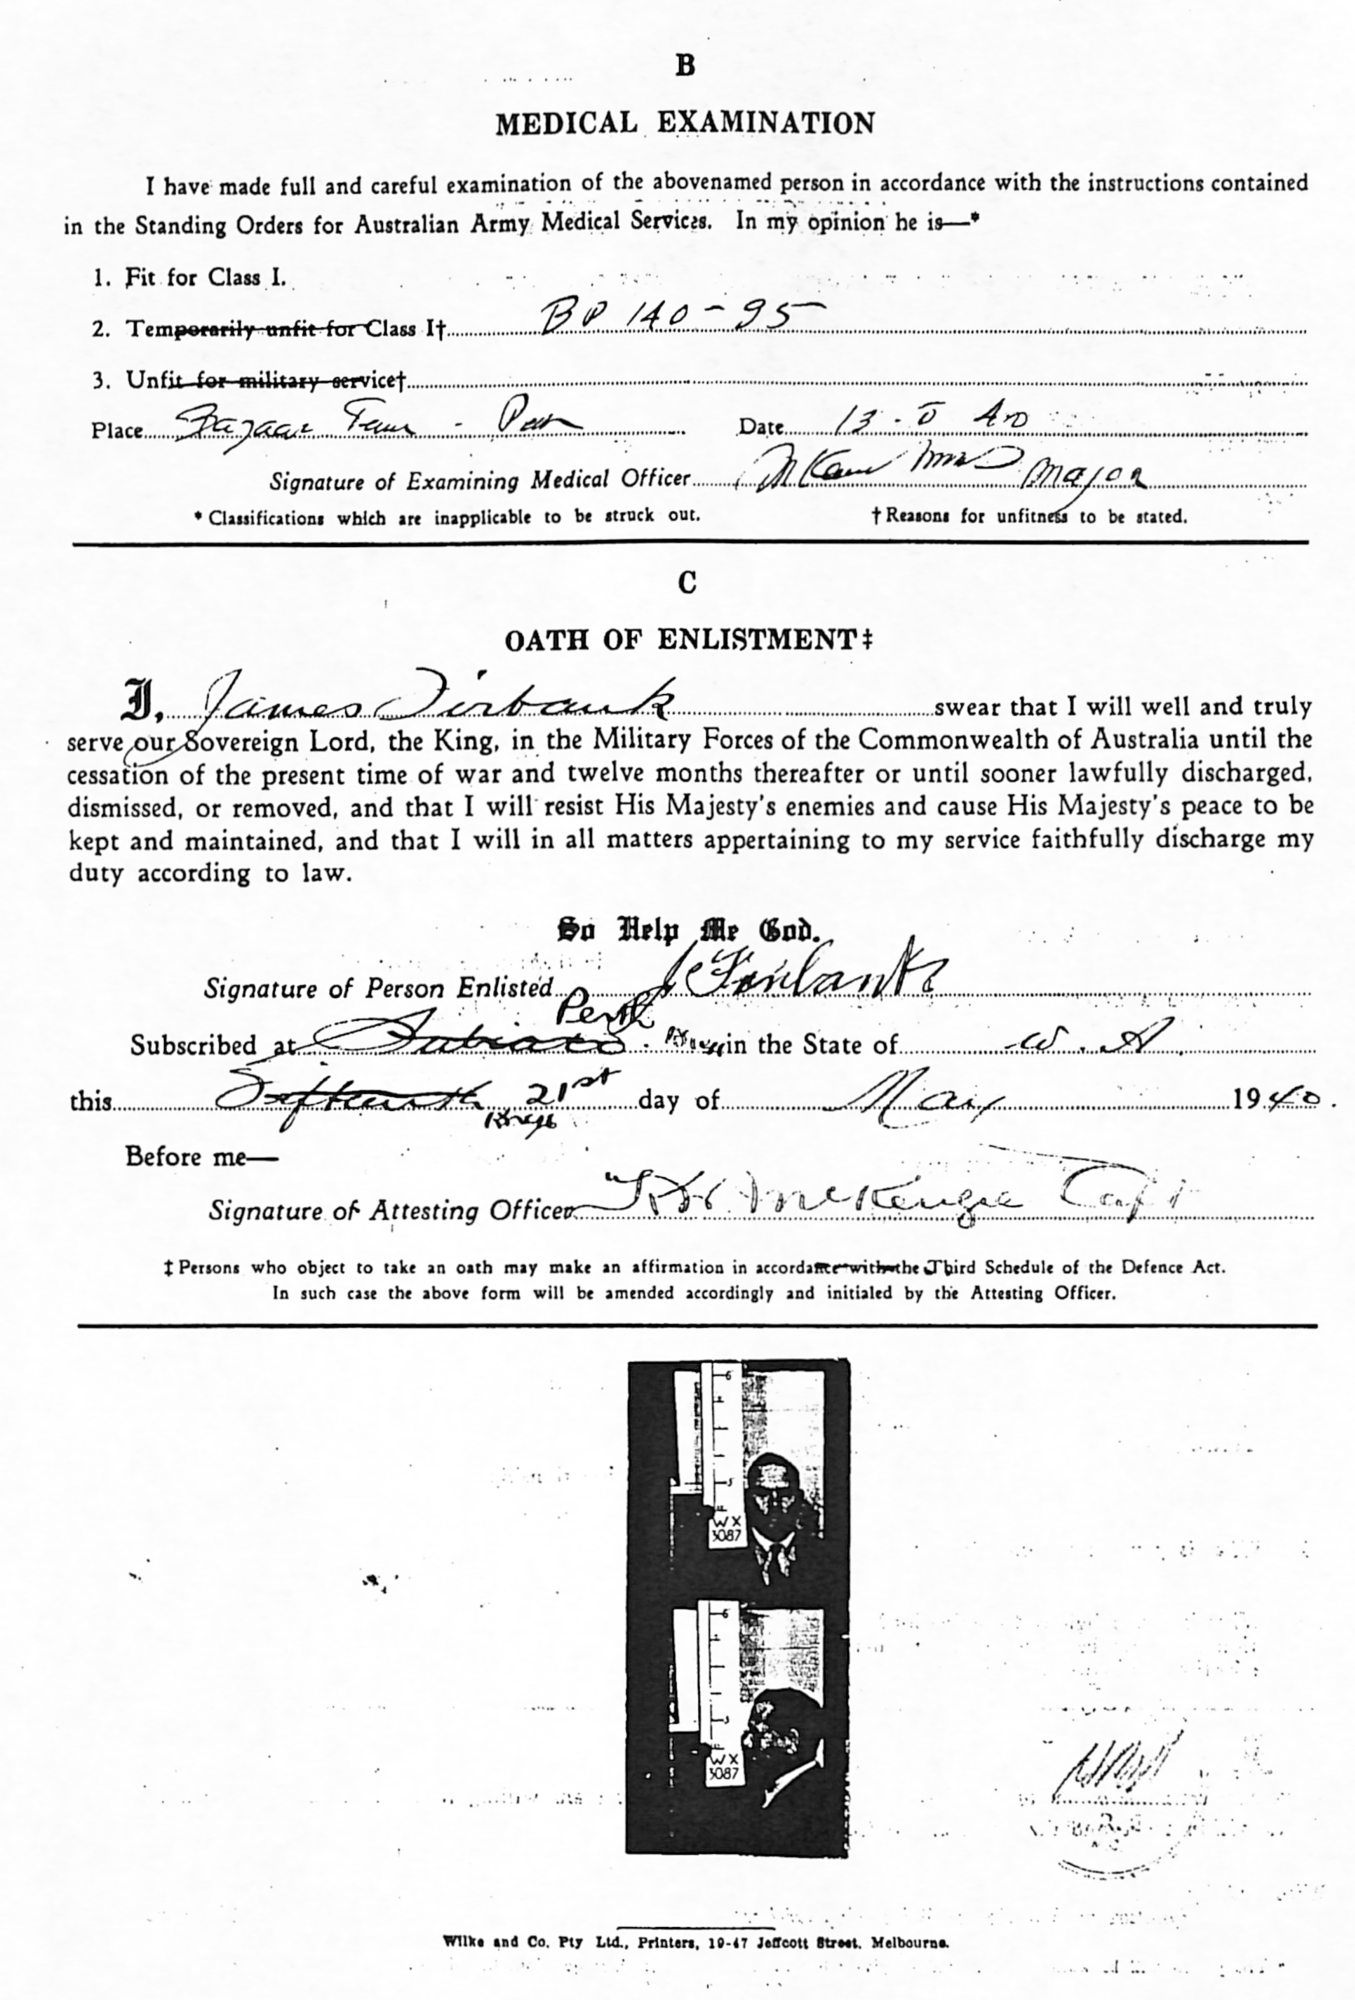 B
MEDICAL EXAMINATION
I have made full and careful examination of the abovenamed person in accordance with the instructions contained
in the Standing Orders for Australian Army Medical Services. In my opinion he is—*
1. Fit for Class I.
2. Temporarily unfit for Class I† BP 140-95
3. Unfit for military service†
Place Date 13 - 5 40
Signature of Examining Medical Officer Major
* Classifications which are inapplicable to be struck out. † Reasons for unfitness to be stated.
C
OATH OF ENLISTMENT‡
I, James Firbank swear that I will well and truly
serve our Sovereign Lord, the King, in the Military Forces of the Commonwealth of Australia until the
cessation of the present time of war and twelve months thereafter or until sooner lawfully discharged,
dismissed, or removed, and that I will resist His Majesty's enemies and cause His Majesty's peace to be
kept and maintained, and that I will in all matters appertaining to my service faithfully discharge my
duty according to law.
So Help Me God.
Signature of Person Enlisted J Firbank
Perth
Subscribed at Subiaco in the State of W. A.
this 21st day of May 1940.
Before me—
Signature of Attesting Officer McKenzie Capt
‡ Persons who object to take an oath may make an affirmation in accordance with the Third Schedule of the Defence Act.
In such case the above form will be amended accordingly and initialed by the Attesting Officer.
6
5
WX
3087
6
5
WX
3087
Wilke and Co. Pty Ltd., Printers, 19-47 Jeffcott Street, Melbourne.